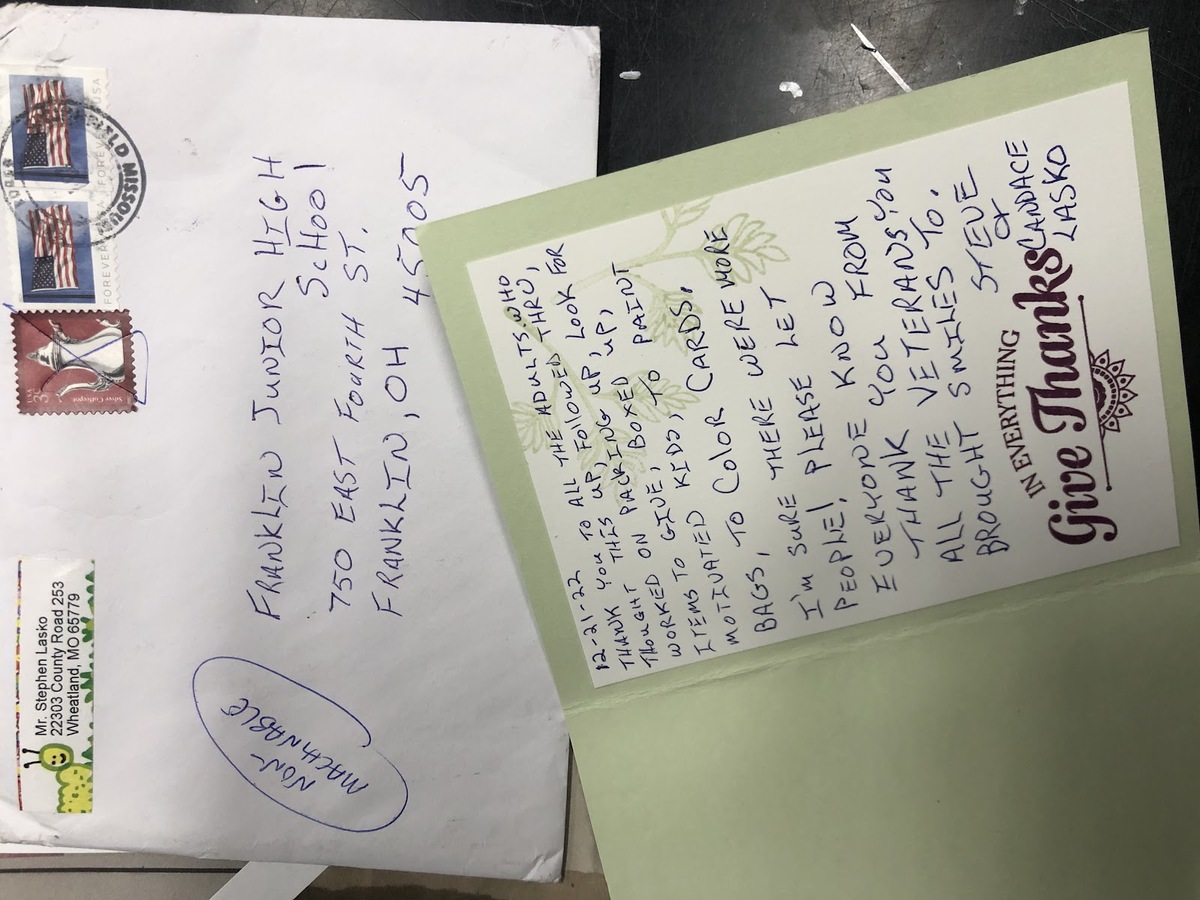 Mr. Stephen Lasko
22303 County Road 253
Wheatland, MO 65779
FOREVER
FOREVER USA
Silver Coffeepot
FIELD MISSOURI
NON-
MACHINABLE
FRANKLIN JUNIOR HIGH
SCHOOL
750 EAST FOURTH ST.
FRANKLIN, OH 45005
12-21-22
THANK YOU TO ALL THE ADULTS WHO
THOUGHT THIS UP, FOLLOWED THRU,
WORKED ON PACKING UP, LOOK FOR
ITEMS TO GIVE, BOXED UP,
MOTIVATED KIDS, TO PAINT
BAGS, TO COLOR CARDS.
I'M SURE THERE WERE MORE
PEOPLE! PLEASE LET
EVERYONE YOU KNOW FROM
THANK VETERANS YOU
ALL THE SMILES TO.
BROUGHT STEVE
or
CANDACE
LASKO
IN EVERYTHING
Give Thanks